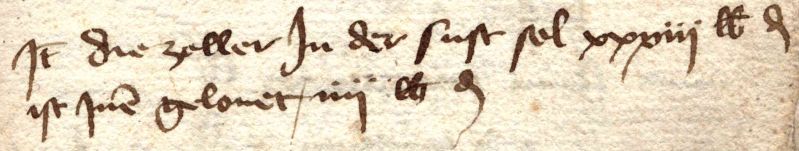 Jt die zeller Jn der sust sol xxxviiij lb d
ist Jnē gelonet iiij lb d